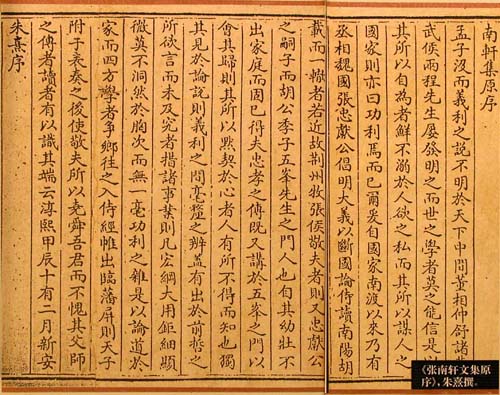 南軒集原序
孟子沒而義利之說不明於天下中間董相仲舒諸葛
武侯兩程先生屡發明之而世之學者莫之能信是以
其所以自為者鮮不溺於人欲之私而其所以謀人之
國家則亦曰功利焉而已爾爰自國家南渡以來乃有
丞相魏國張忠獻公倡明大義以斷國論侍讀南陽胡
載而一轍者若近故荊州牧張侯敬夫者則又忠獻公
之嗣子而胡公季子五峯先生之門人也自其幼壯不
出家庭而固已得夫忠孝之傳既又講於五峯之門以
會其歸則其所以默契於心者人有所不得而知也獨
其見於論說則義利之間毫釐之辨蓋有出於前哲之
所欲言而未及究者措諸事業則凡宏綱大用鉅細顯
微莫不洞然於胸次而無一毫功利之雜是以論道於
家而四方學者爭鄉往之入侍經帷出臨藩屏則天子
附于表奏之後使敬夫所以堯舜吾君而不愧其父師
之傳者讀者有以識其端云淳熙甲辰十有二月新安
朱熹序
《张南轩文集原
序》，朱熹撰。